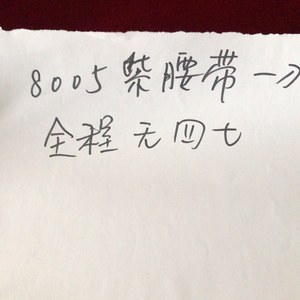 8005紫腰带一
全程无四七